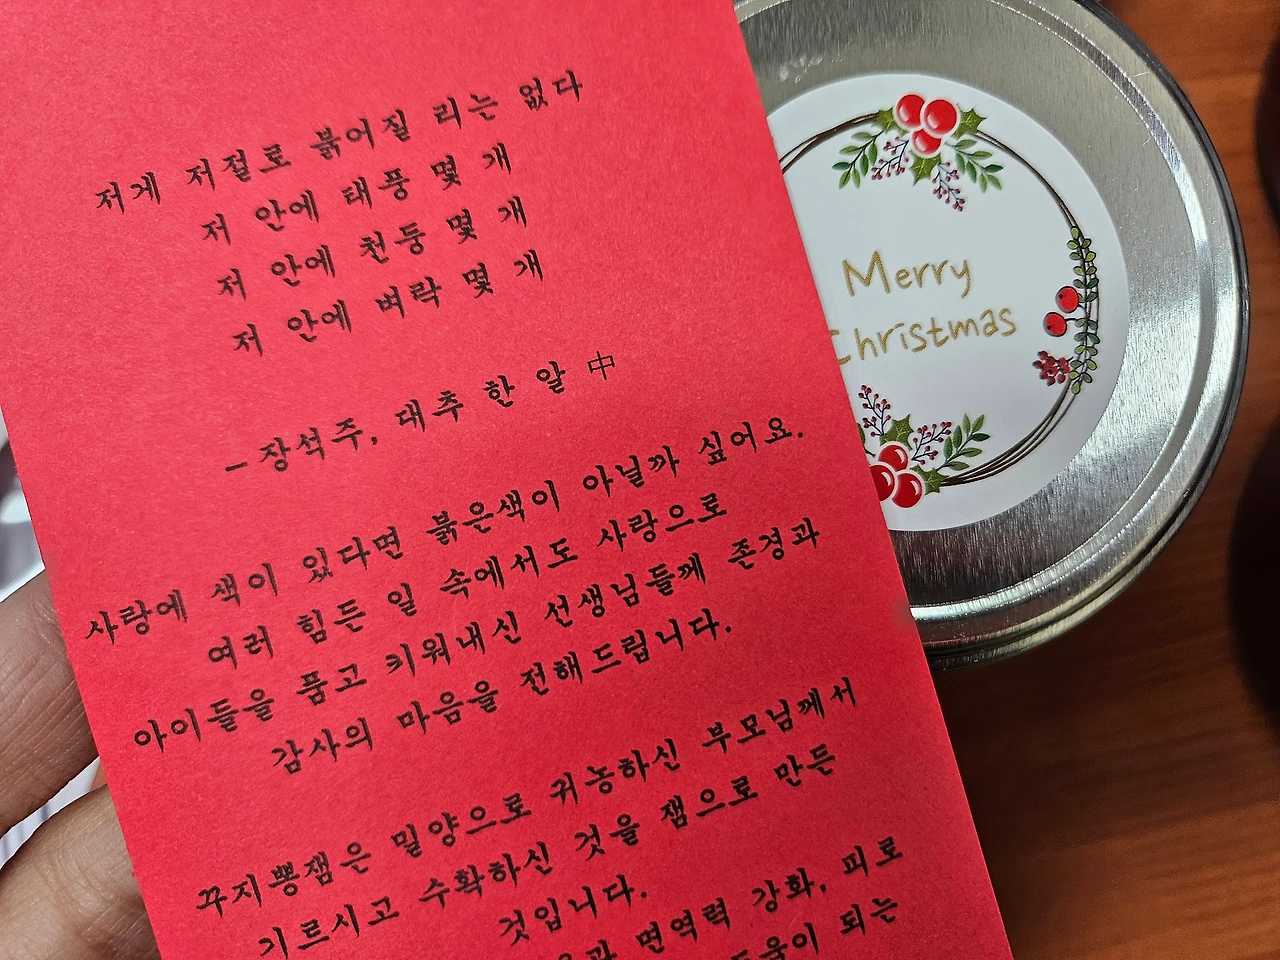 저게 저절로 붉어질 리는 없다
저 안에 태풍 몇 개
저 안에 천둥 몇 개
저 안에 벼락 몇 개
- 장석주, 대추 한 알 中
사랑에 색이 있다면 붉은색이 아닐까 싶어요.
여러 힘든 일 속에서도 사랑으로
아이들을 품고 키워내신 선생님들께 존경과
감사의 마음을 전해드립니다.
꾸지뽕잼은 밀양으로 귀농하신 부모님께서
기르시고 수확하신 것을 잼으로 만든
것입니다.
면역력 강화, 피로
되는
Merry
Christmas